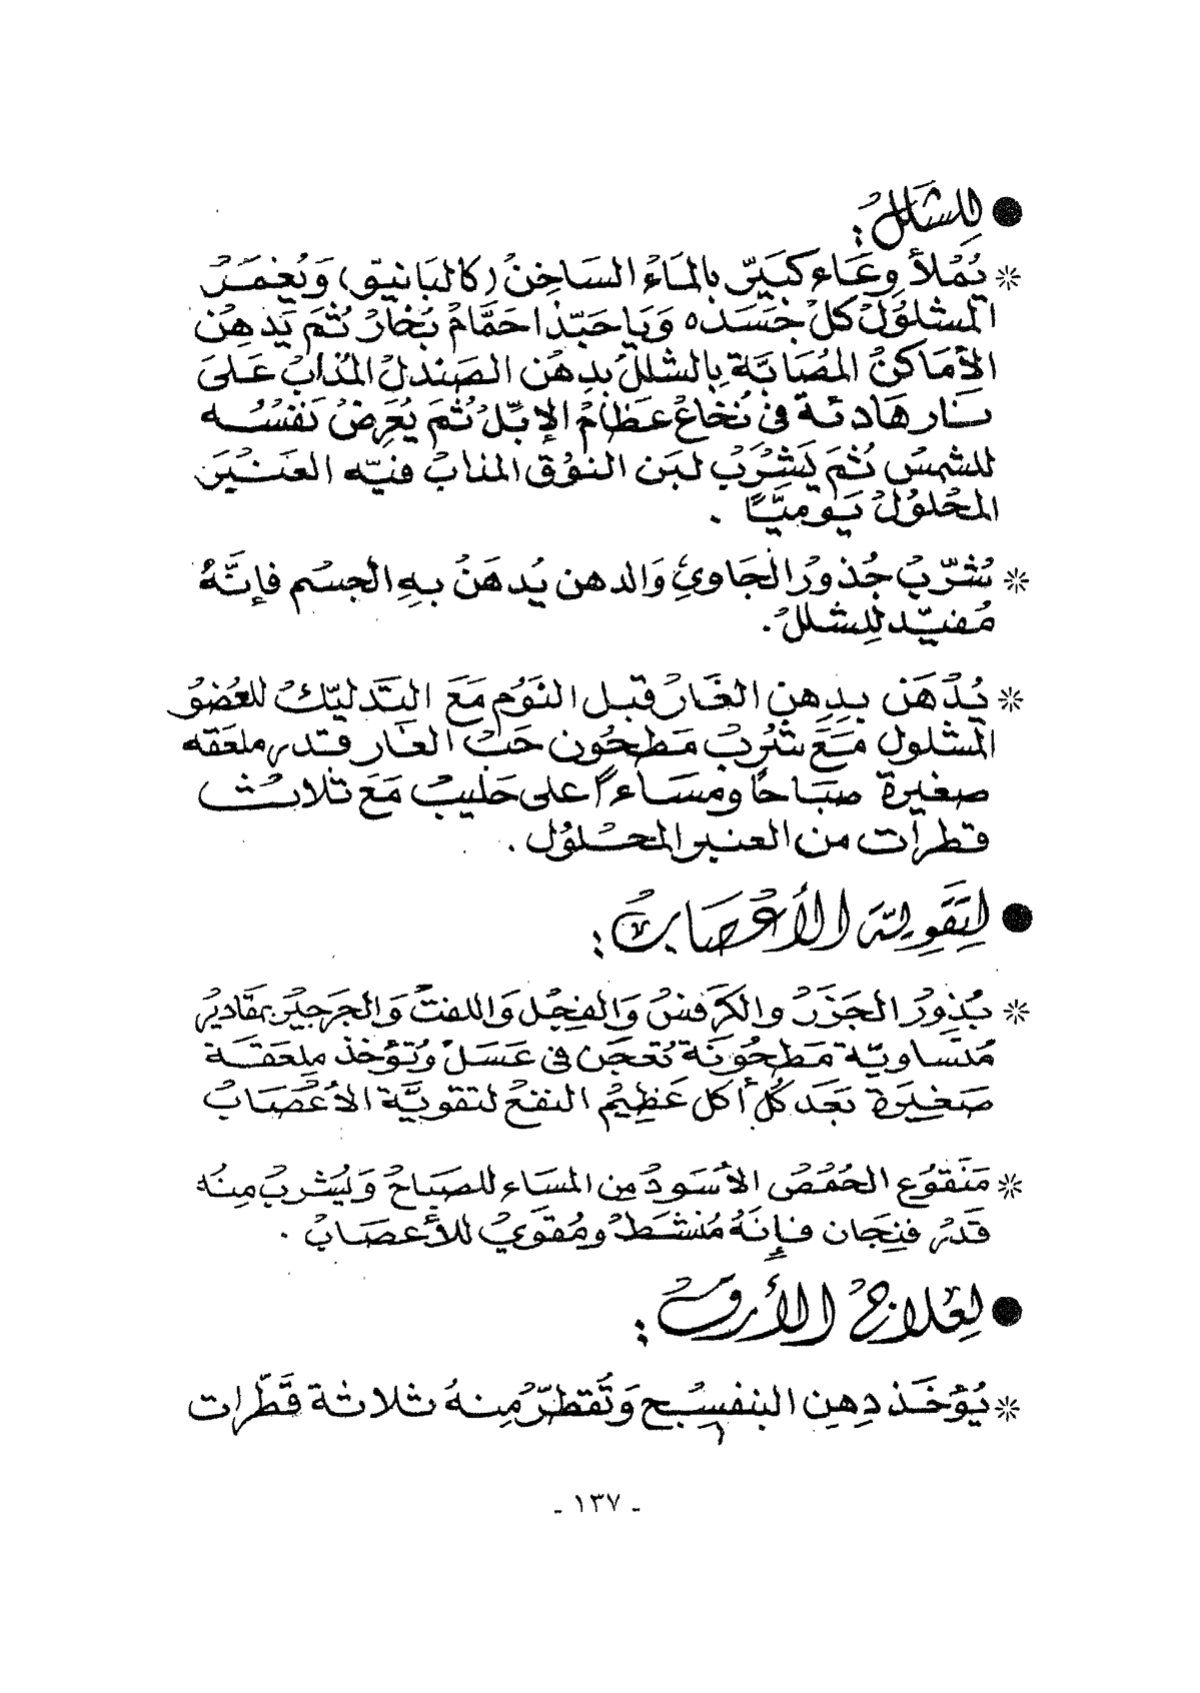 ● للشلل:
* يُملأ وعَاء كبَيّر بالمَاءْ السَاخِنْ (كالبَانيّو) وَيُغمَرُ
المشلوُلْ كلْ جَسَده وَيَا حَبّذا حَمَّامْ بُخارْ ثُمَ يَدهِنْ
الأمَاكنْ المُصَابَّة بِالشلَلْ بدِهْن الصَندلْ المُذابْ عَلىَ
نَار هَادئة فى نُخَاعْ عظَامْ الإبِّلْ ثُمَ يعُرِضْ نَفسُه
للشمسْ ثُمَ يَشرَبْ لبَن النوُق المذابْ فيّه العَنبَر
المحْلوُلْ يَوميًّا .
* تُشرّبْ جُذورْ الجَاويْ وَالدهن يُدهَنُ بهِ الجسْم فإنَّهُ
مُفيّد للِشللْ.
* يُدْهَن بدِهِن الغَارْ قبل النَوْم مَعَ التَدليّكْ للعُضوُ
المشلول مَعَ شُربْ مَطحُون حَبْ الغَار قدر ملعَقه
صغيرة صبَاحًا ومسَاءً على حَليبْ مَعَ ثلاثْ
قطرات من العنبر المحْلوُل .
● لتَقَوِيَة الأعْصَابْ :
* بُذورْ الجَزَرْ والكرَفسْ وَالفِجْل وَاللفتْ وَالجَرجيْر بمقَاديرْ
مُتسَاويّة مَطحُونَة تُعجَن فى عَسَلْ وَتُؤخذ مِلعَقَة
صَغيِرَة بَعَد كُل أكل عَظِيم النفعْ لتقويَّة الأعْصَابْ
* مَنقوُع الحُمُصْ الأسْودْ مِن المسَاء للصبَاحْ وَيُشربْ مِنُه
قَدرْ فنِجَان فإنَهُ مُنشطْ ومُقوَيْ للأعصَابْ .
● لعِلاجْ الأرقْ :
* يُؤخَذ دِهِن البنفسِجْ وَتُقطرّ مِنهُ ثلاثة قَطّرات
- ١٣٧ -